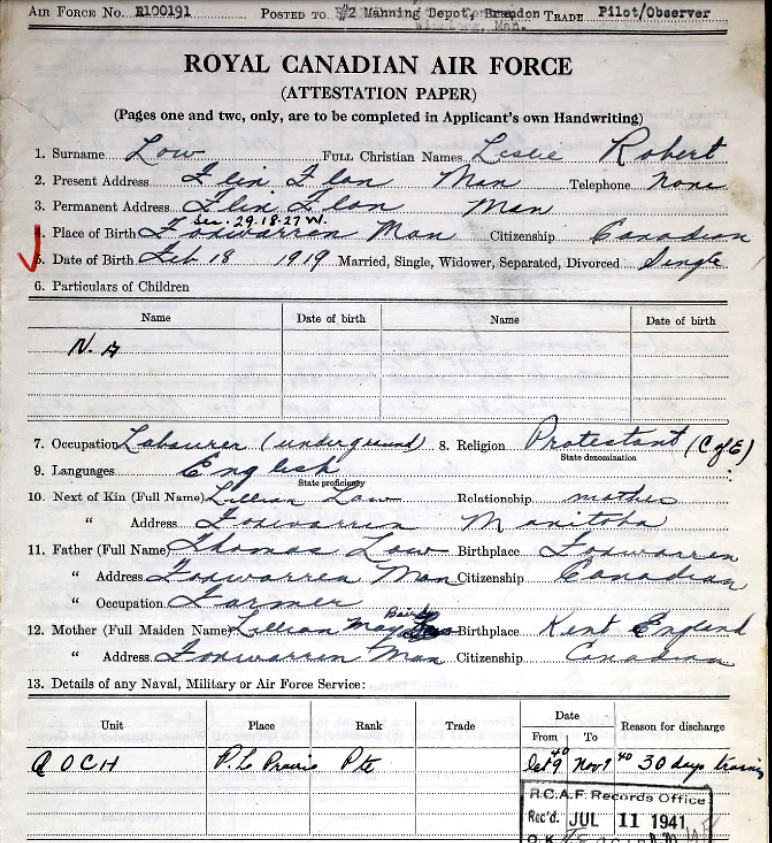 AIR FORCE No. R100191 POSTED TO #2 Manning Depot, Brandon TRADE Pilot/Observer
Man.
ROYAL CANADIAN AIR FORCE
(ATTESTATION PAPER)
(Pages one and two, only, are to be completed in Applicant's own Handwriting)
1. Surname Low FULL Christian Names Leslie Robert
2. Present Address Flin Flon Man Telephone none
3. Permanent Address Flin Flon Man
Sec. 29.18.27 W.
Place of Birth Foxwarren Man Citizenship Canadian
5. Date of Birth Feb 18 1919 Married, Single, Widower, Separated, Divorced Single
6. Particulars of Children
Name Date of birth Name Date of birth
N.A
7. Occupation Labourer (underground) 8. Religion Protestant (C of E)
State denomination
9. Languages English
State proficiency
10. Next of Kin (Full Name) Lillian Low Relationship mother
" Address Foxwarren Manitoba
11. Father (Full Name) Thomas Low Birthplace Foxwarren
" Address Foxwarren Man Citizenship Canadian
" Occupation Farmer
12. Mother (Full Maiden Name) Lillian May Birthplace Kent England
" Address Foxwarren Man Citizenship Canadian
13. Details of any Naval, Military or Air Force Service:
Unit Place Rank Trade Date Reason for discharge
From To
QOCH P. La Prairie Pte Oct 9 40 Nov 9 40 30 days training
R.C.A.F. Records Office
Rec'd. JUL 11 1941